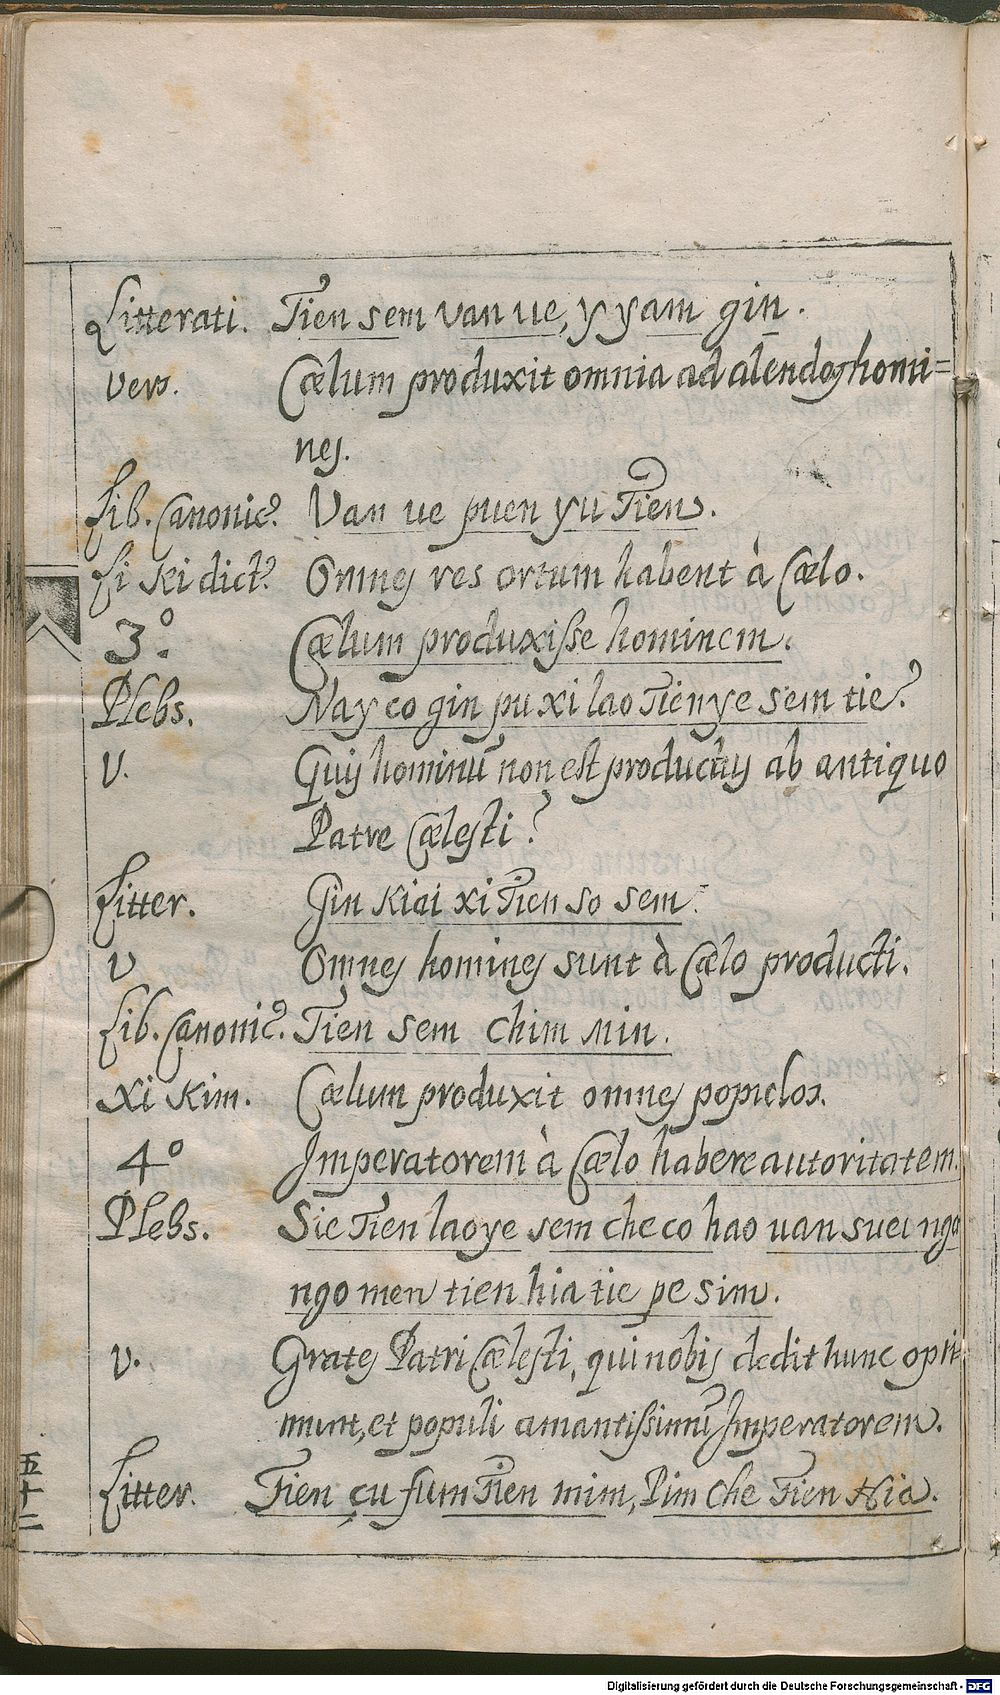 Litterati. Tien sem van ve, y yam gin.
Vers. Cælum produxit omnia ad alendos homi=
nes.
Lib. Canonic9. Van ve puen yu Tien.
Li Ki dict9. Omnes res ortum habent à Cælo.
3o. Cælum produxisse hominem.
Plebs. Nay co gin pu xi lao Tien ye sem tie?
V. Quis hominũ non est productus ab antiquo
Patre Cælesti?
Litter. Gin kiai xi Tien so sem.
V Omnes homines sunt à Cælo producti.
Lib. Canonic9. Tien sem chim min.
Xi Kim. Cælum produxit omnes populos.
4o Imperatorem à Cælo habere autoritatem.
Plebs. Sie Tien lao ye sem che co hao van suei ngo
ngo men tien hia tie pe sim.
V. Grates Patri Cælesti, qui nobis dedit hunc opti
mum, et populi amantissimũ Imperatorem.
Litter. Tien çu fum Tien mim, Pim che Tien Hia.
五十二
Digitalisierung gefördert durch die Deutsche Forschungsgemeinschaft - DFG